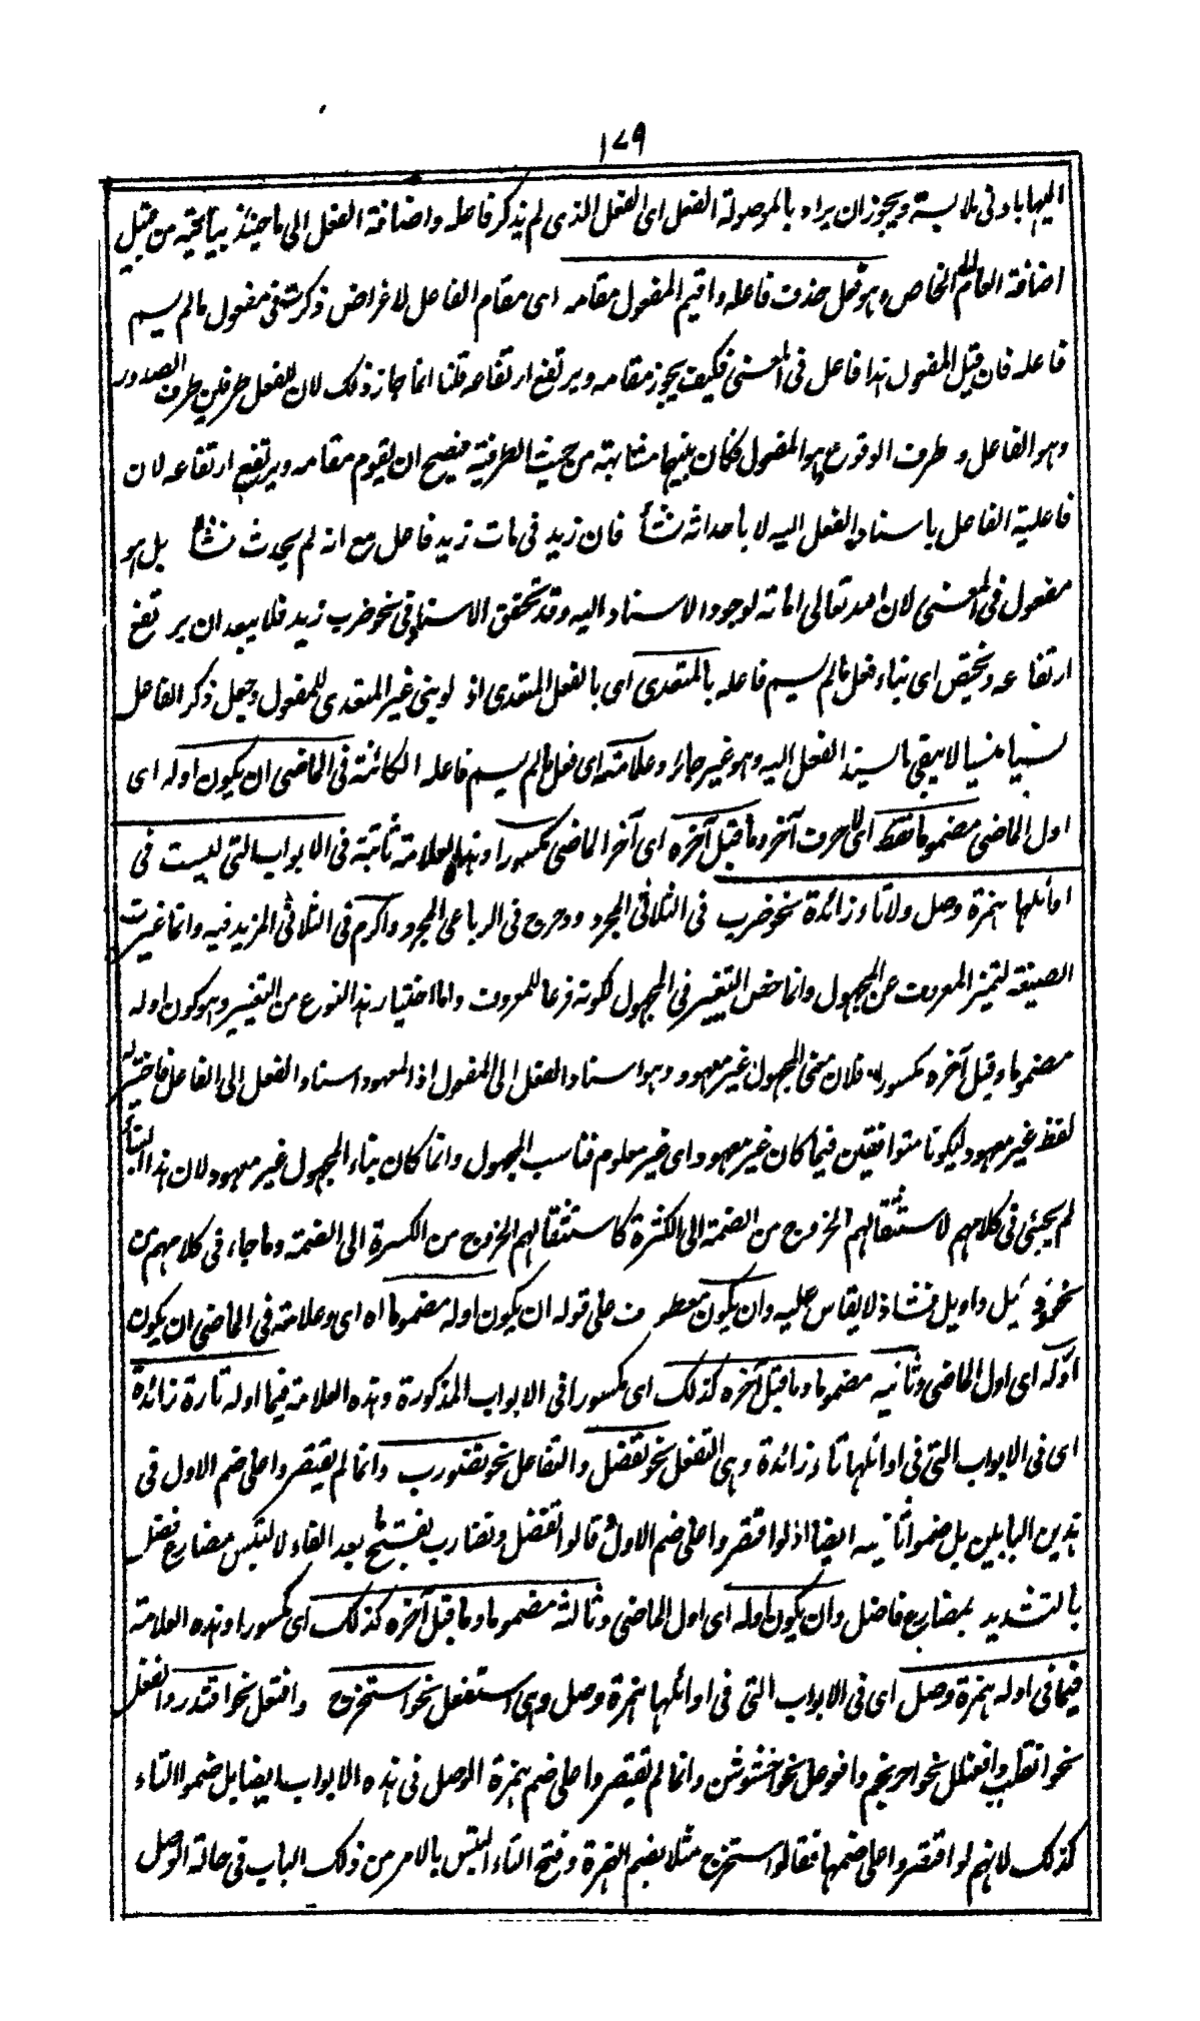 ١٧٩
اليها بادنى ملابسة ويجوز ان يراد بالموصولة الفعل اى الفعل الذى لم يذكر فاعله واضافة الفعل الى ما حينئذ بيانية من قبيل
اضافة العام الى الخاص وهو فعل حذف فاعله واقيم المفعول مقامه اى مقام الفاعل لاغراض ذكرت فى مفعول مالم يسم
فاعله فان قيل المفعول ضد الفاعل فى المعنى فكيف يجوز مقامه ويرتفع ارتفاعه قلنا انما جاز ذلك لان للفعل طرفين طرف الصدور
وهو الفاعل وطرف الوقوع وهو المفعول فكان بينهما مشابهة من حيث الطرفية فيصح ان يقوم مقامه ويرتفع ارتفاعه لان
فاعلية الفاعل باسناد الفعل اليه لا باحداثه شئا فان زيد فى مات زيد فاعل مع انه لم يحدث شئا بل هو
مفعول فى المعنى لان الله تعالى اماته لوجود الاسناد اليه وقد تحقق الاسناد فى نحو ضرب زيد فلا يبعد ان يرتفع
ارتفاعه ويختص اى بناء فعل مالم يسم فاعله بالمتعدى اى بالفعل المتعدى اذ لو بنى غير المتعدى للمفعول وجعل ذكر الفاعل
نسيا منسيا لا يبقى ما يسند الفعل اليه وهو غير جائز وعلامته اى فعل مالم يسم فاعله الكائنة فى الماضى ان يكون اوله اى
اول الماضى مضموما فقط اى لا حرف آخر وما قبل آخره اى آخر الماضى مكسورا وهذه العلامة ثابتة فى الابواب التى ليست فى
اوائلها همزة وصل ولا تاء زائدة نحو ضرب فى الثلاثى المجرد ودحرج فى الرباعى المجرد واكرم فى الثلاثى المزيد فيه وانما غيرت
الصيغة لتميز المعروف عن المجهول وانما خص التغيير فى المجهول لكونه فرعا للمعروف واما اختيار هذا النوع من التغيير وهو كون اوله
مضموما وقبل آخره مكسورا فلان معنى المجهول غير معهود وهو اسناد الفعل الى المفعول اذ المعهود اسناد الفعل الى الفاعل فاختير له
لفظ غير معهود ليكونا متوافقين فيما كان غير معهود اى غير معلوم فناسب المجهول وانما كان بناء المجهول غير معهود لان هذا البناء
لم يجئ فى كلامهم لاستثقالهم الخروج من الضمة الى الكسرة كاستثقالهم الخروج من الكسرة الى الضمة وما جاء فى كلامهم من
نحو دئيل واويل فشاذ لا يقاس عليه وان يكون معطوف على قوله ان يكون اوله مضموما اه اى وعلامته فى الماضى ان يكون
اوله اى اول الماضى وثانيه مضموما وما قبل آخره كذلك اى مكسورا فى الابواب المذكورة وهذه العلامة فيما اوله تارة زائدة
اى فى الابواب التى فى اوائلها تاء زائدة وهى التفعل نحو تفضل والتفاعل نحو تضورب وانما لم يقتصروا على ضم الاول فى
هذين البابين بل ضموا ثانيه ايضا اذ لو اقتصروا على ضم الاول قالوا تفضل وتضارب بفتح ما بعد الفاء لالتبس مضارع فضل
بالتشديد بمضارع فاضل وان يكون اوله اى اول الماضى وثالثه مضموما وما قبل آخره كذلك اى مكسورا وهذه العلامة
فيما فى اوله همزة وصل اى فى الابواب التى فى اوائلها همزة وصل وهى استفعل نحو استخرج وافتعل نحو اقتدر وانفعل
نحو انقلب وافعنلل نحو احرنجم وافعوعل نحو اخشوشن وانما لم يقتصروا على ضم همزة الوصل فى هذه الابواب ايضا بل ضموا التاء
كذلك لانهم لو اقتصروا على ضمها فقالوا استخرج مثلا بضم الهمزة وفتح التاء التبس بالامر من ذلك الباب فى حالة الوصل